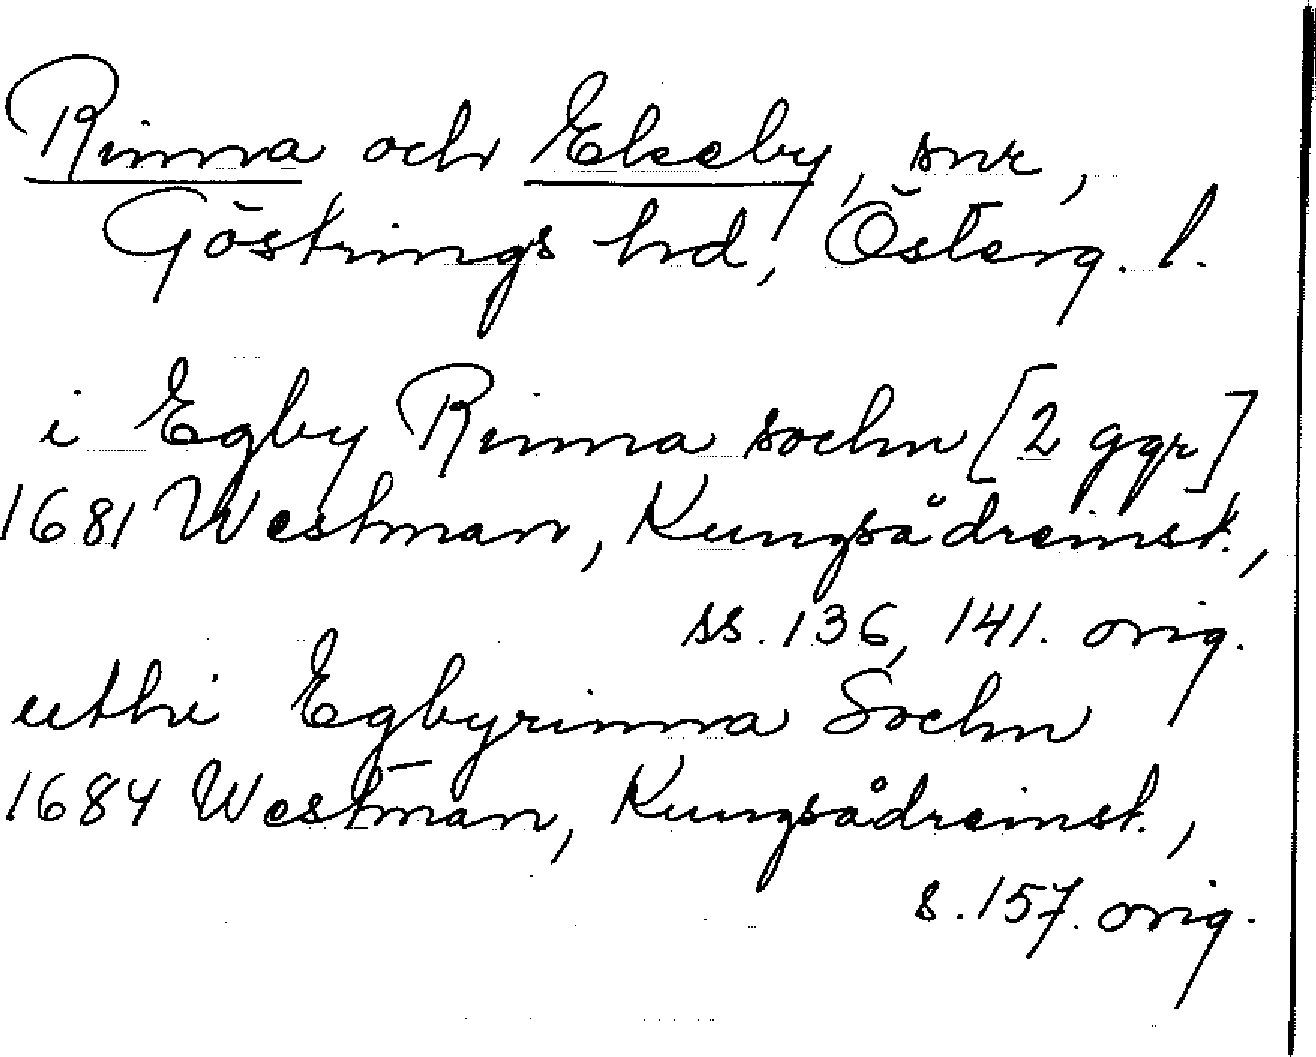 Rinna och Ekeby, snr,
Göstrings hd, Österg. l.
i Egby Rinna sochn [2 ggr]
1681 Westman, Kungsådreinst.,
ss. 136, 141. orig.
uthi Egbyrinna Sochn
1684 Westman, Kungsådreinst.,
s. 157. orig.